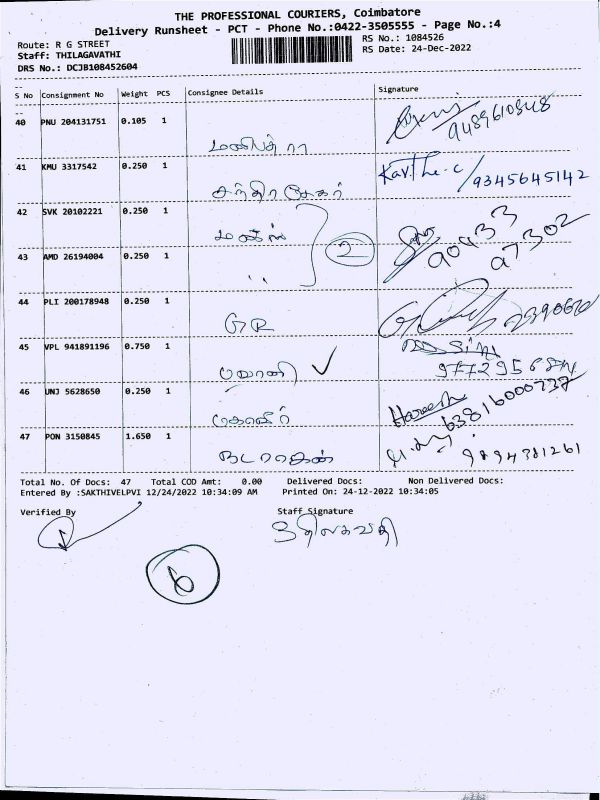 THE PROFESSIONAL COURIERS, Coimbatore
Delivery Runsheet - PCT - Phone No.:0422-3505555 - Page No.:4
Route: R G STREET RS No.: 1084526
Staff: THILAGAVATHI RS Date: 24-Dec-2022
DRS No.: DCJB108452604
S No Consignment No Weight PCS Consignee Details Signature
40 PNU 204131751 0.105 1
9489610848
41 KMU 3317542 0.250 1 Karthe.c /9345645142
சந்திரசேகர்
42 SVK 20102221 0.250 1
2
43 AMD 26194004 0.250 1
,,
44 PLI 200178948 0.250 1
GR
45 VPL 941891196 0.750 1
46 UNJ 5628650 0.250 1
Hareesh
47 PON 3150845 1.650 1
நடராஜன் 9894381261
Total No. Of Docs: 47 Total COD Amt: 0.00 Delivered Docs: Non Delivered Docs:
Entered By :SAKTHIVELPVI 12/24/2022 10:34:09 AM Printed On: 24-12-2022 10:34:05
Verified By Staff Signature
திலகவதி
6